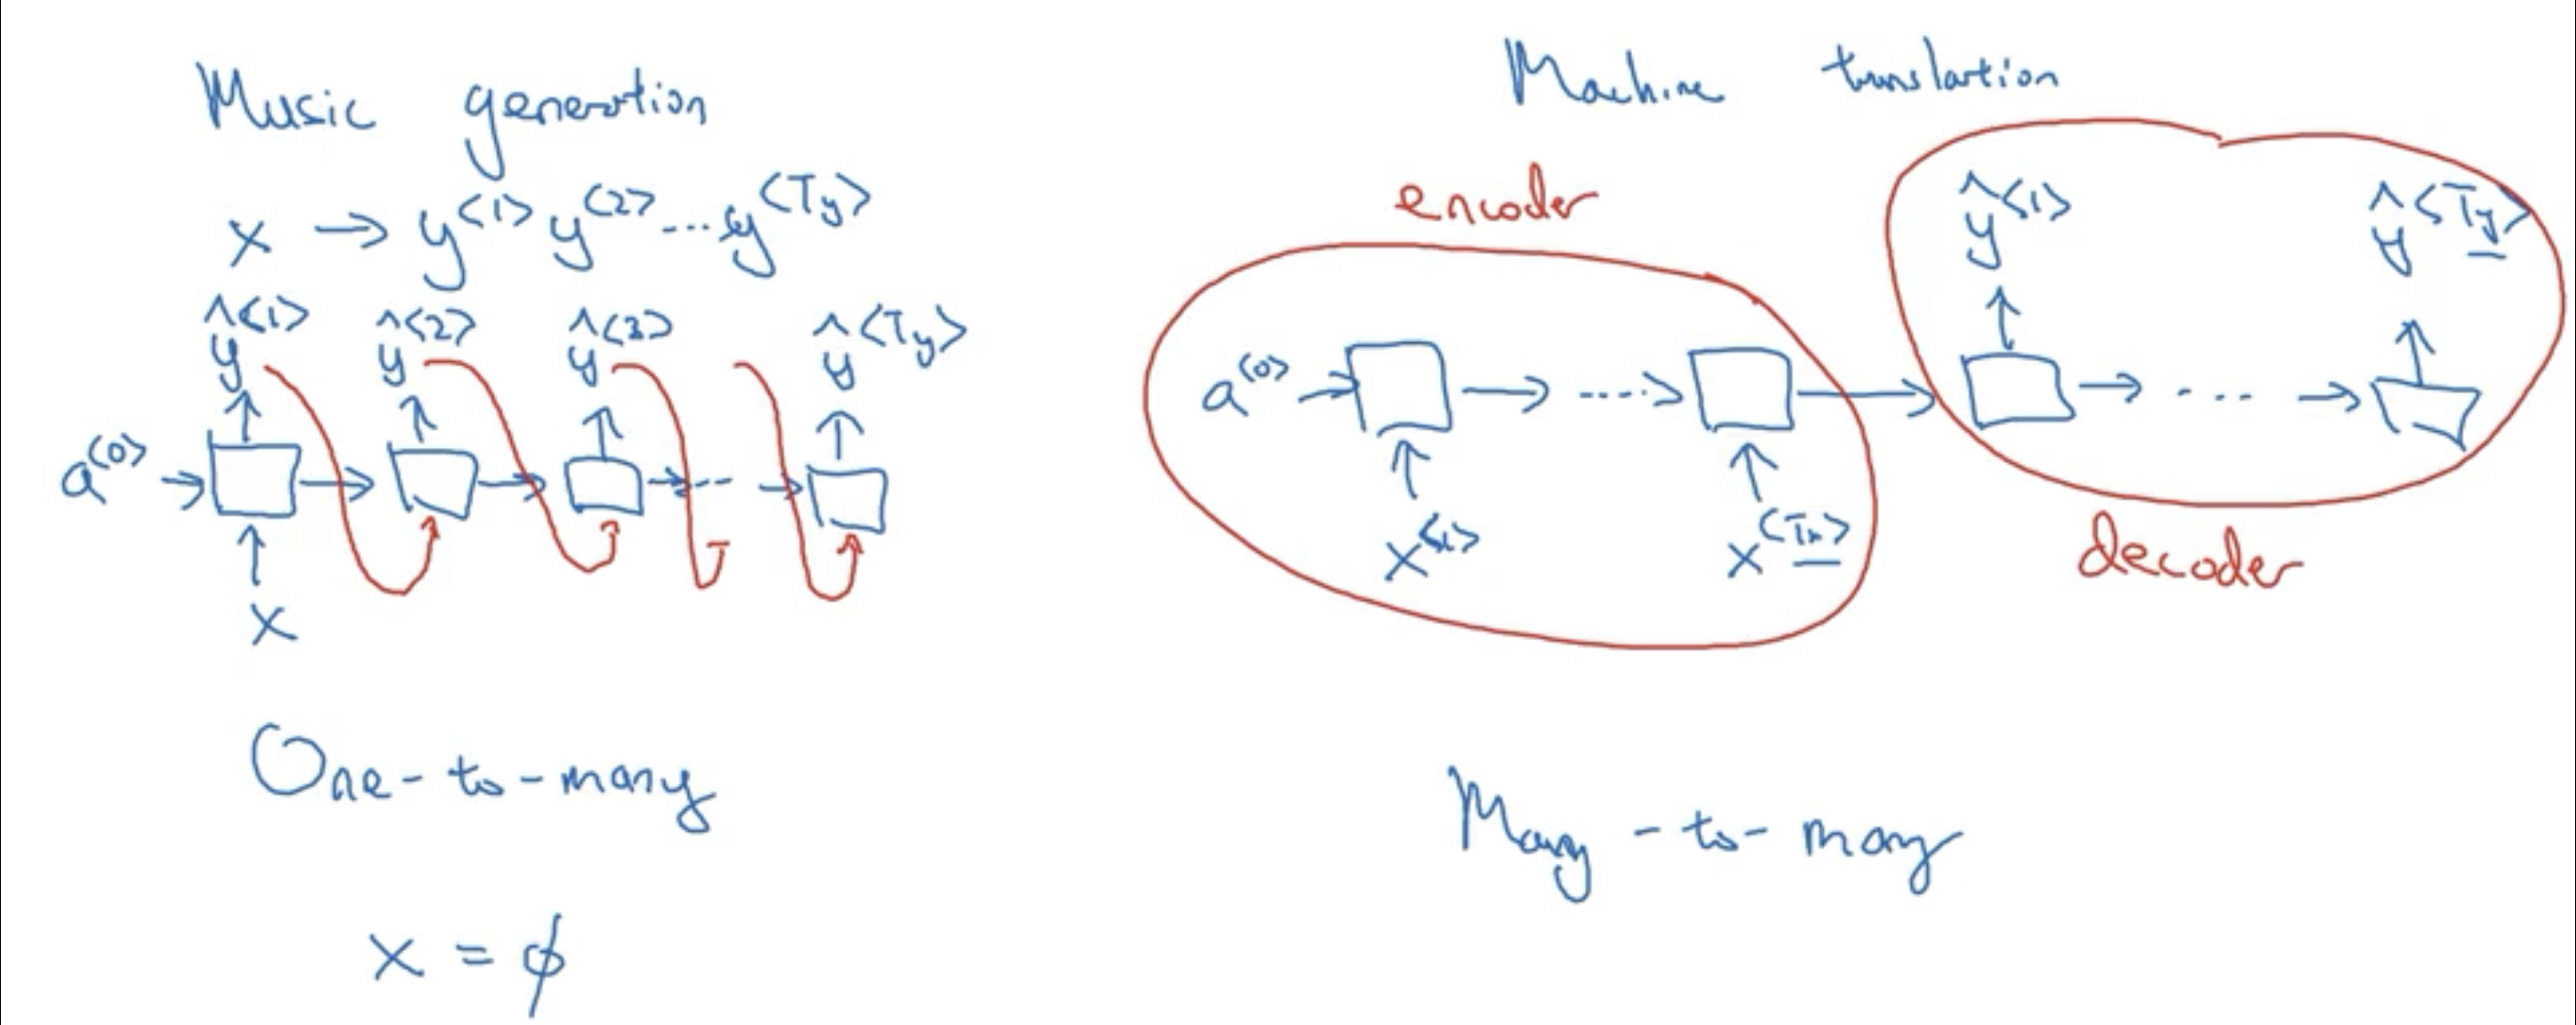 Music generation
x → y<1> y<2> ... y<Ty>
ŷ<1> ŷ<2> ŷ<3> ŷ<Ty>
a<0>
x
One-to-many
x = ϕ
Machine translation
encoder
ŷ<1> ŷ<Ty>
a<0>
x<1> x<Tx>
decoder
Many-to-many